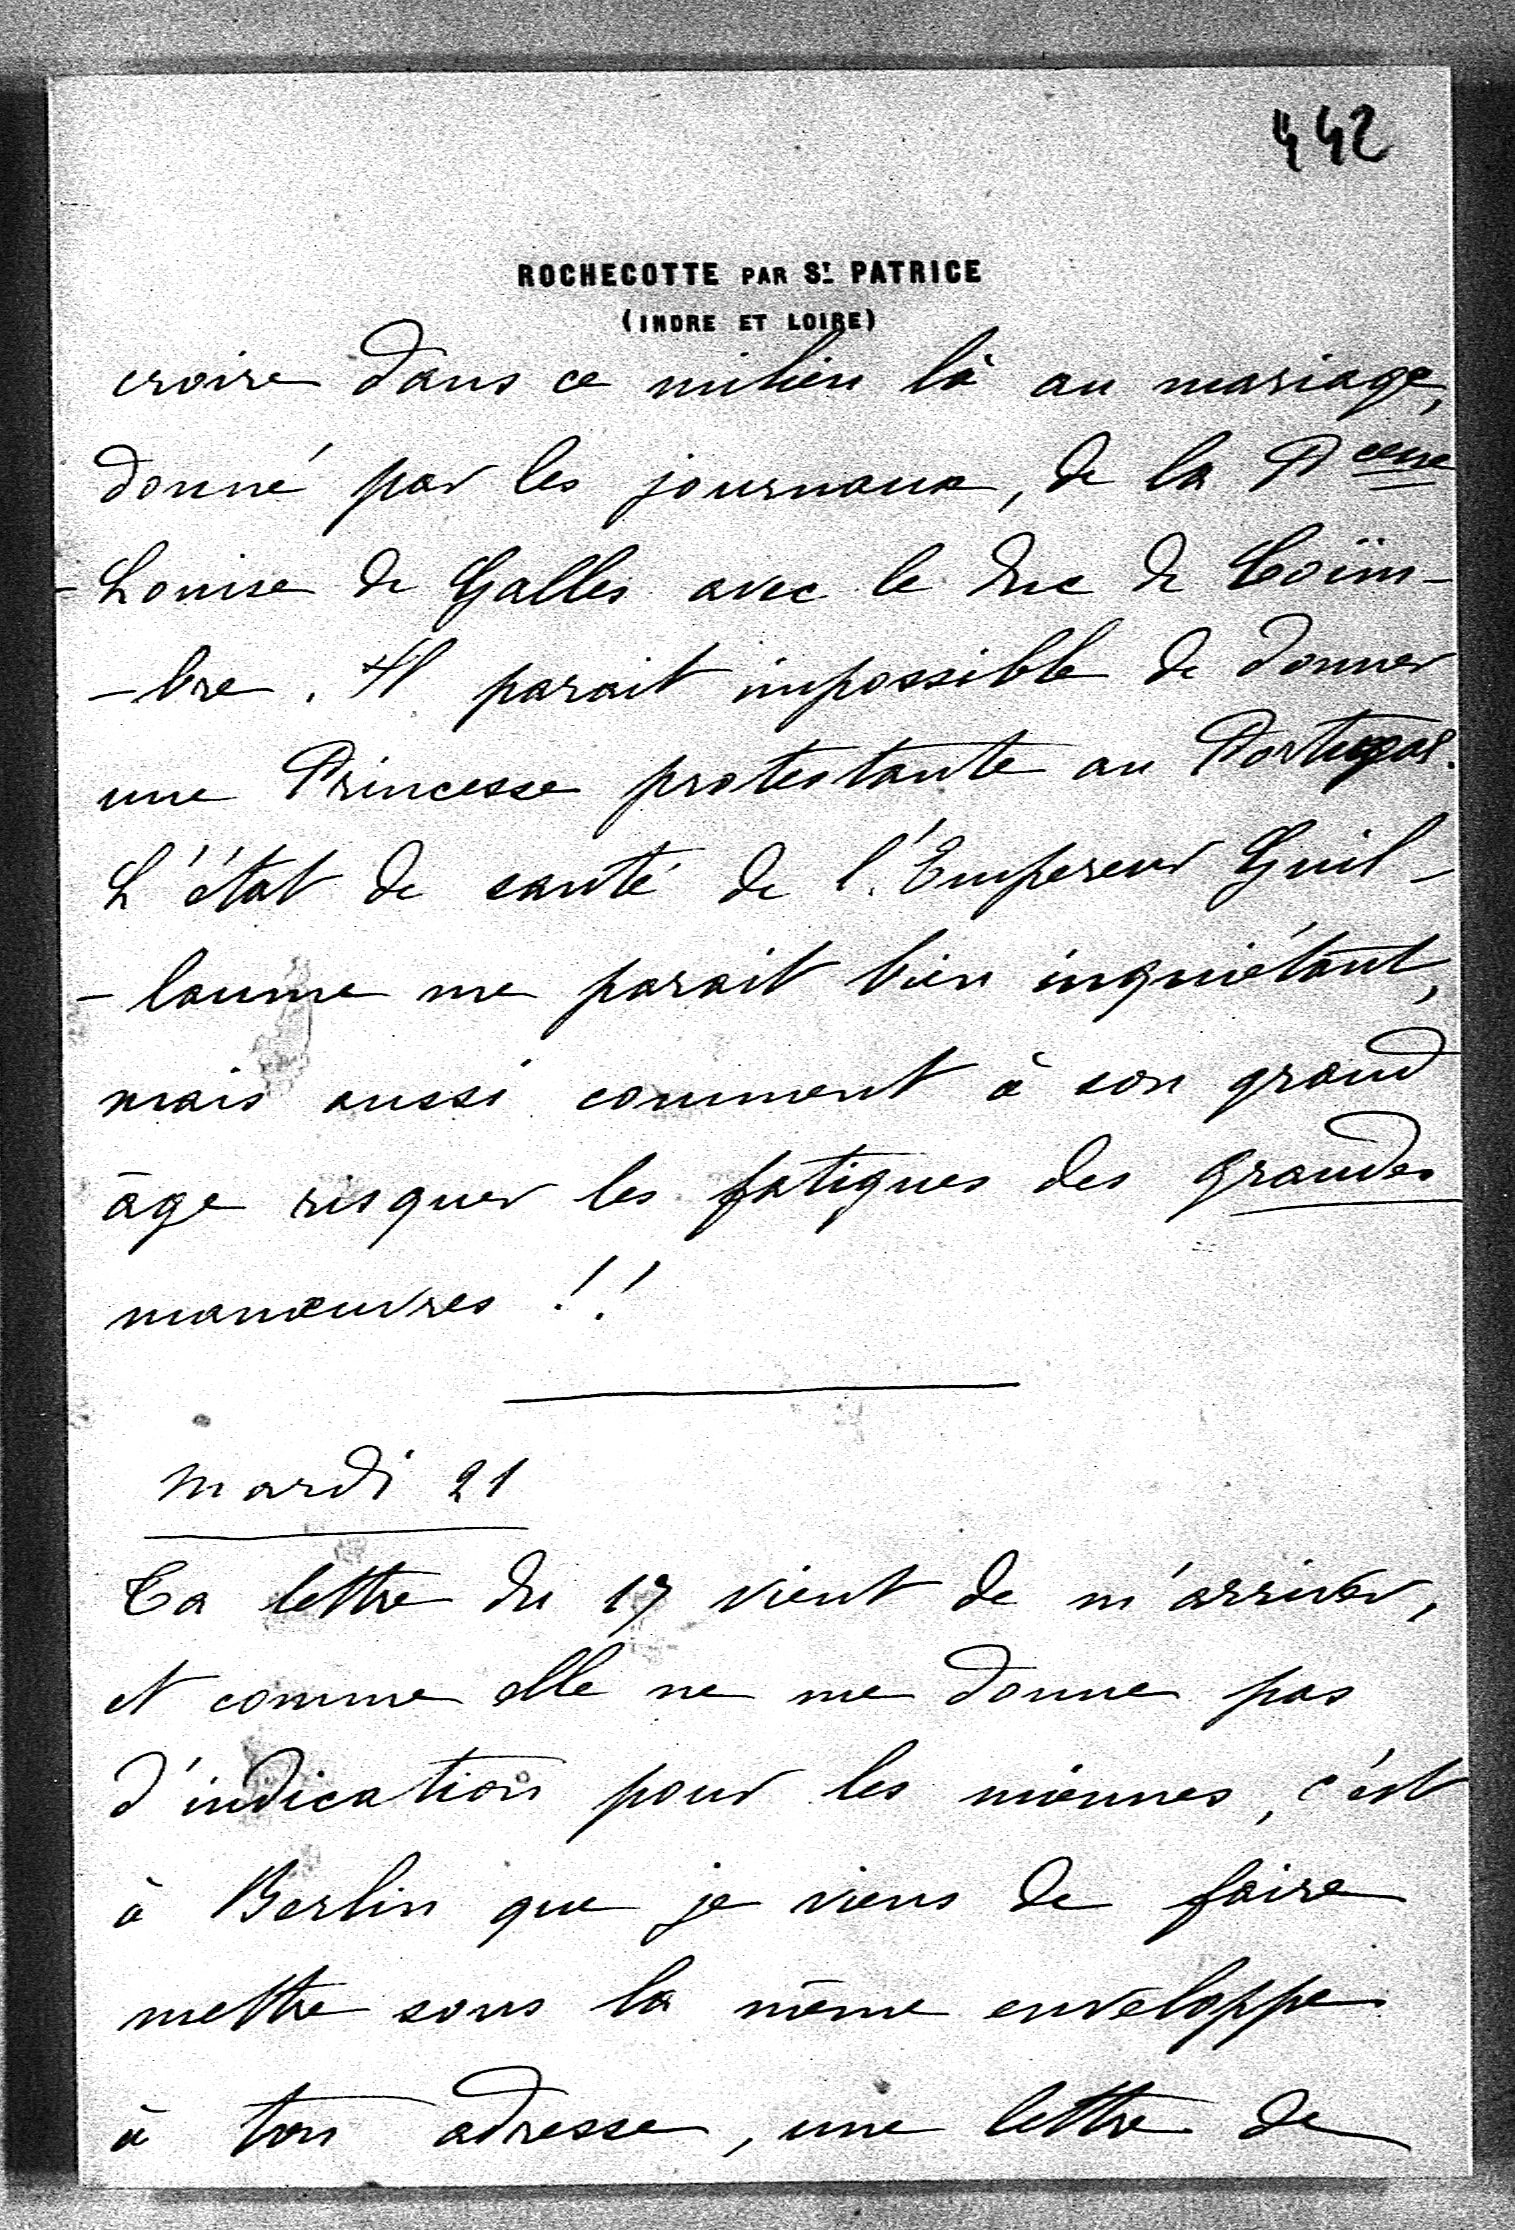 442
ROCHECOTTE PAR ST PATRICE
(INDRE ET LOIRE)
croire dans ce milieu là au mariage,
donné par les journaux, de la Pcesse
Louise de Galles avec le duc de Coïm-
-bre. Il parait impossible de donner
une Princesse protestante au Portugal.
L'état de santé de l'Empereur Guil-
-laume me parait bien inquiétant,
mais aussi comment à son grand
âge risquer les fatigues des grandes
manœuvres !!
Mardi 21
Ta lettre du 17 vient de m'arriver,
et comme elle ne me donne pas
d'indication pour les miennes, c'est
à Berlin que je viens de faire
mettre sous la même enveloppe
à ton adresse, une lettre de